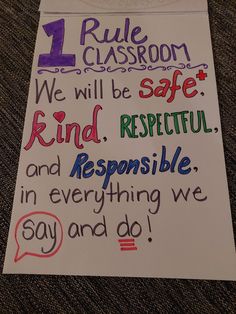 1 Rule
CLASSROOM
We will be safe,
kind, RESPECTFUL,
and Responsible,
in everything we
say and do!